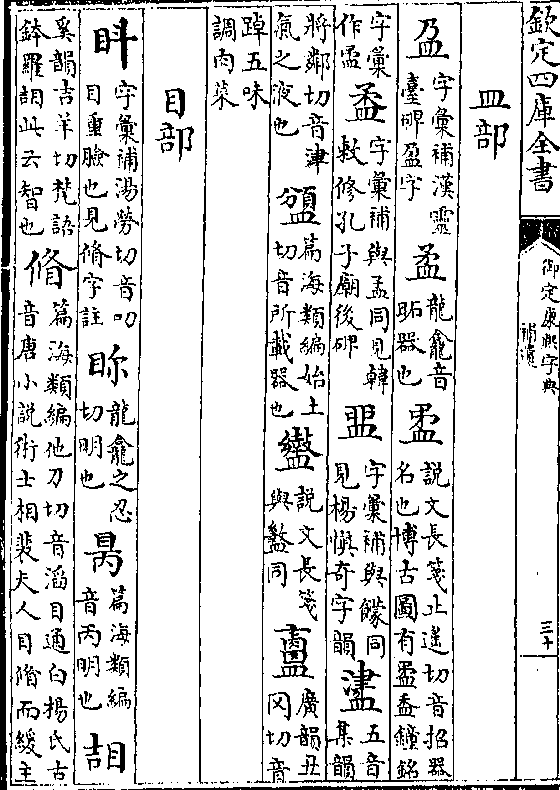 欽定四庫全書
御定康熙字典
補遺
三十
皿部
盁 字彙補漢靈臺碑盈字
龍龕音䀃器也
說文長箋止遥切音招器名也博古圖有盄盉鐘銘
字彙補與孟同見韓敕修孔子廟後碑
字彙補與饛同見楊慎奇字韻
五音集韻將鄰切音津氣之液也
篇海類編始土切音所載器也
說文長箋與盭同
廣韻丑岡切音踔五味調肉菜
目部
字彙補湯勞切音叨目重瞼也見䏌字註
龍龕之忍切明也
篇海類編音丙明也
奚韻吉羊切梵語鉢羅䛊此云智也
篇海類編他刀切音滔目通白楊氏古音唐小說術士相裴夫人目脩而緩主